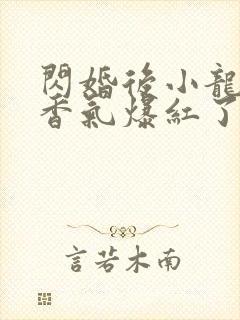 閃婚後小龍
香氣爆紅了
言若木南